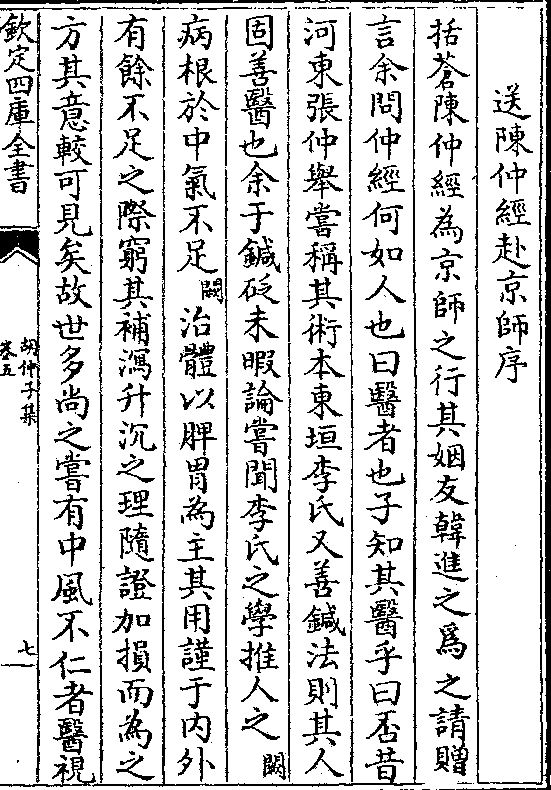 送陳仲經赴京師序
括蒼陳仲經為京師之行其姻友韓進之爲之請贈
言余問仲經何如人也曰醫者也子知其醫乎曰否昔
河東張仲舉嘗稱其術本東垣李氏又善鍼法則其人
固善醫也余于鍼砭未暇論嘗聞李氏之學推人之闕
病根於中氣不足闕治體以脾胃為主其用謹于内外
有餘不足之際窮其補瀉升沉之理隨證加損而為之
方其意較可見矣故世多尚之嘗有中風不仁者醫視
欽定四庫全書
胡仲子集
卷五
七